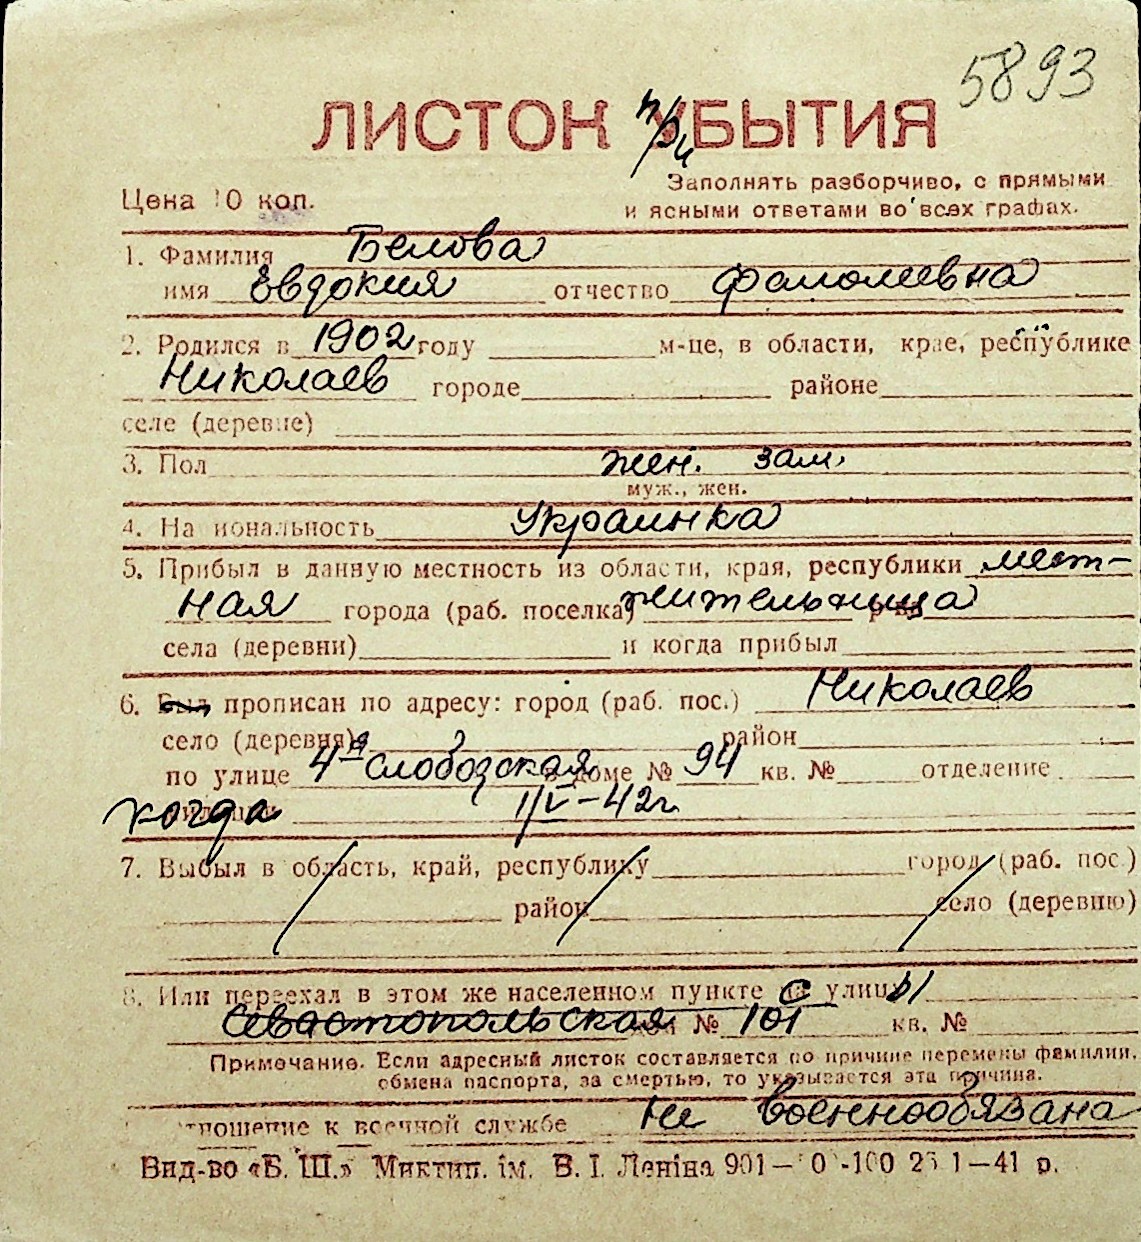 5893
ЛИСТОК прибытия
Цена 10 коп.
Заполнять разборчиво, с прямыми
и ясными ответами во всех графах.
1. Фамилия Белова
имя Евдокия отчество Фамолиевна
2. Родился в 1902 году м-це, в области, крае, республике
Николаев городе районе
селе (деревне)
3. Пол жен. зам.
муж., жен.
4. Национальность Украинка
5. Прибыл в данную местность из области, края, республики мест-
ная города (раб. поселка) жительница
села (деревни) и когда прибыл
6. Был прописан по адресу: город (раб. пос.) Николаев
село (деревня) район
по улице 4-я Слободская в доме № 94 кв. № отделение
когда 1/V-42г.
7. Выбыл в область, край, республику город (раб. пос.)
район село (деревню)
8. Или переехал в этом же населенном пункте с улицы
Севастопольская № 101 кв. №
Примечание. Если адресный листок составляется по причине перемены фамилии,
обмена паспорта, за смертью, то указывается эта причина.
Отношение к военной службе не военнообязана
Вид-во «Б. Ш.» Миктип. ім. В. І. Леніна 901— 1—41 р.